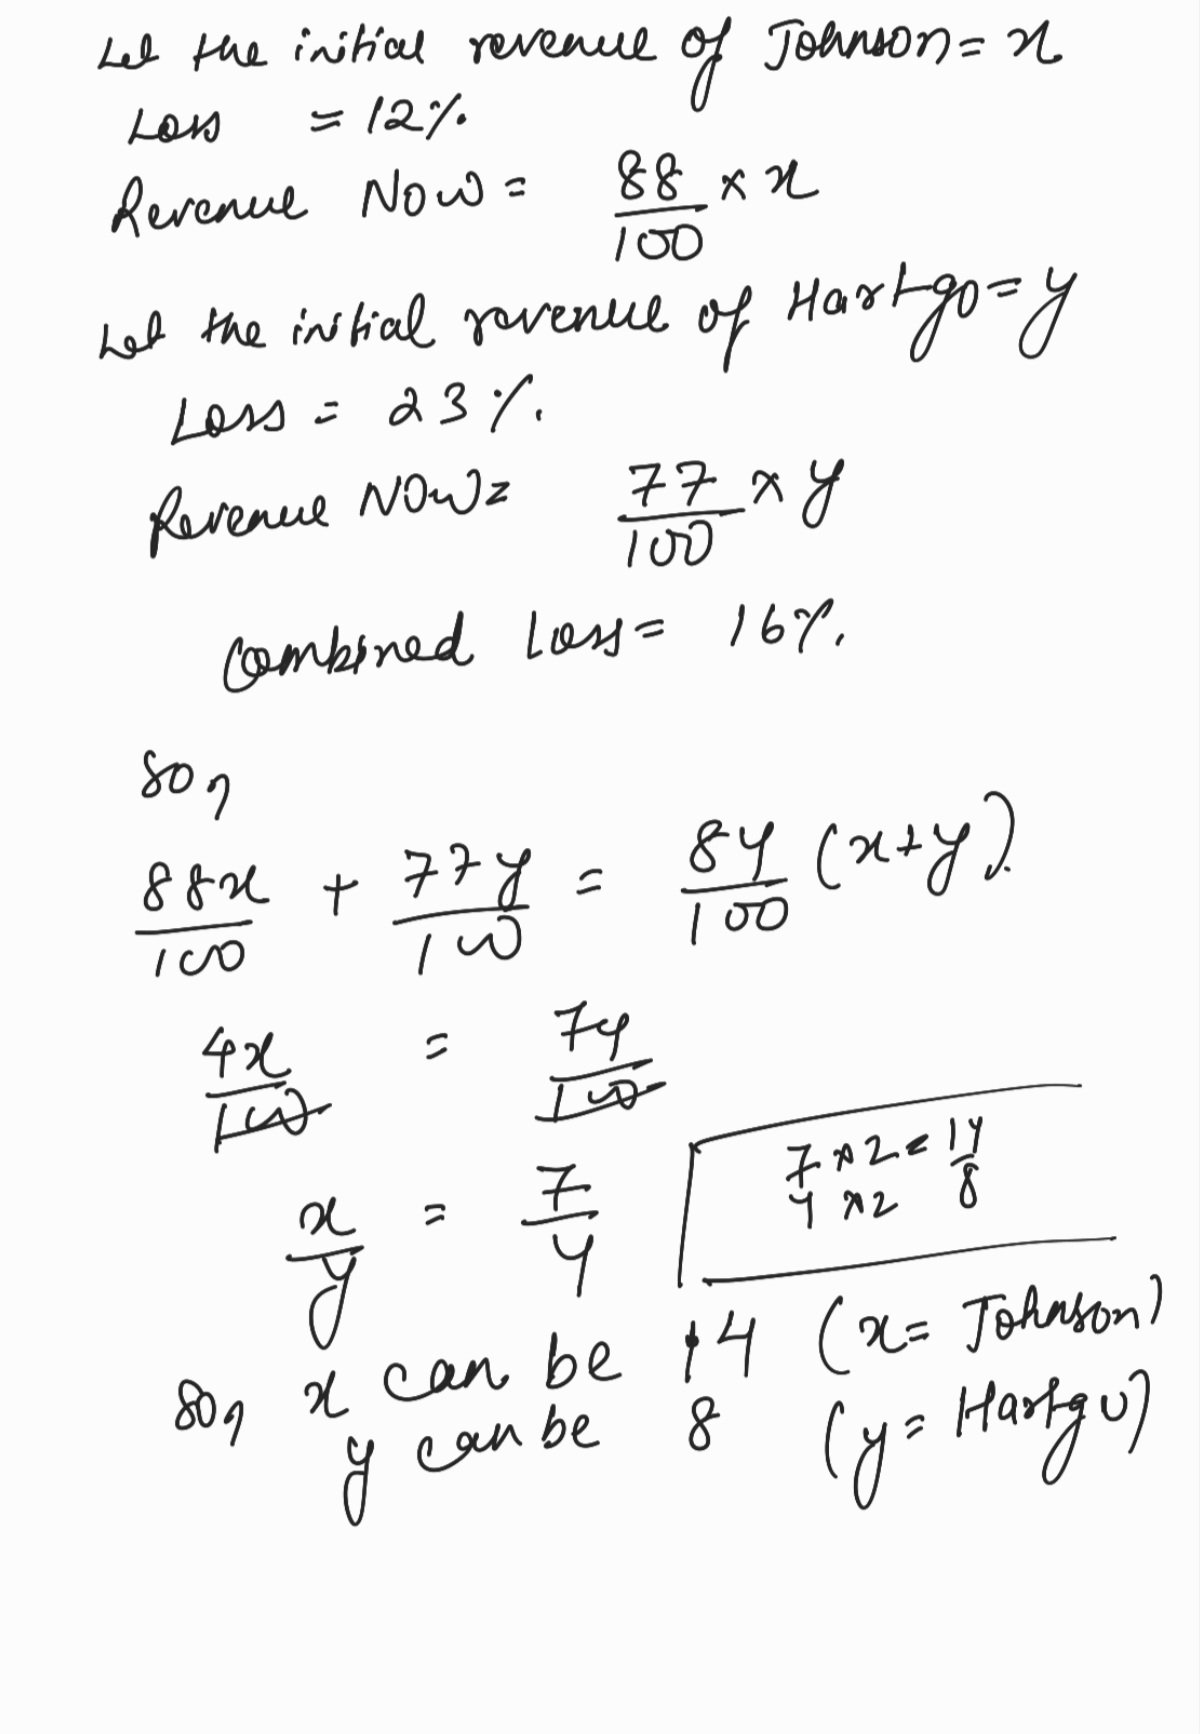 Let the initial revenue of Johnson = x
Loss = 12%.
Revenue Now = 88/100 × x
Let the initial revenue of Hartgo = y
Loss = 23%.
Revenue Now = 77/100 × y
Combined loss = 16%.
So,
88x/100 + 77y/100 = 84/100 (x+y).
4x/100 = 7y/100
x/y = 7/4
7 × 2 = 14
4 × 2 8
So, x can be 14 (x = Johnson)
y can be 8 (y = Hartgo)